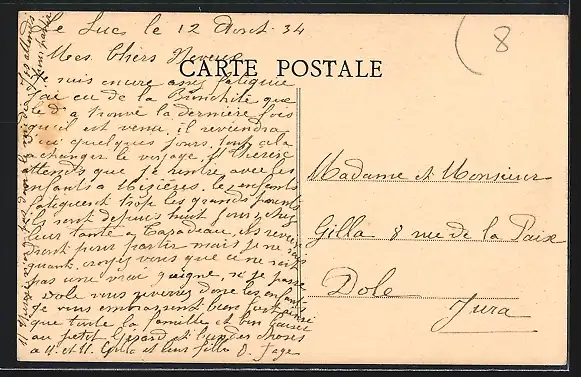 Le Luc le 12 Août 34
Mes Chers Neveux
CARTE POSTALE
Je suis encore assez fatiguée
j'ai eu de la Bronchite que
le d a trouvé la dernière fois
qu'il est venu, il reviendra
d'ici quelques jours, tout cela
a changer le voyage,
attends que je rentre avec les
enfants a Mézières, les enfants
fatiguent trop les grands parents
ils sont depuis huit jours chez
leur tante a, ils revien
dront pour partir mais je ne sais
quand, croyez vous que ce ne soit
pas une vraie guigne, si je passe
a Dole vous verrez donc les enfants
je vous embrassent bien fort ainsi
que toute la famille et bon baiser
au petit Gérard et
a M. et M. Gilla et leur fille
Madame et Monsieur
Gilla 8 rue de la Paix
Dole
Jura
8